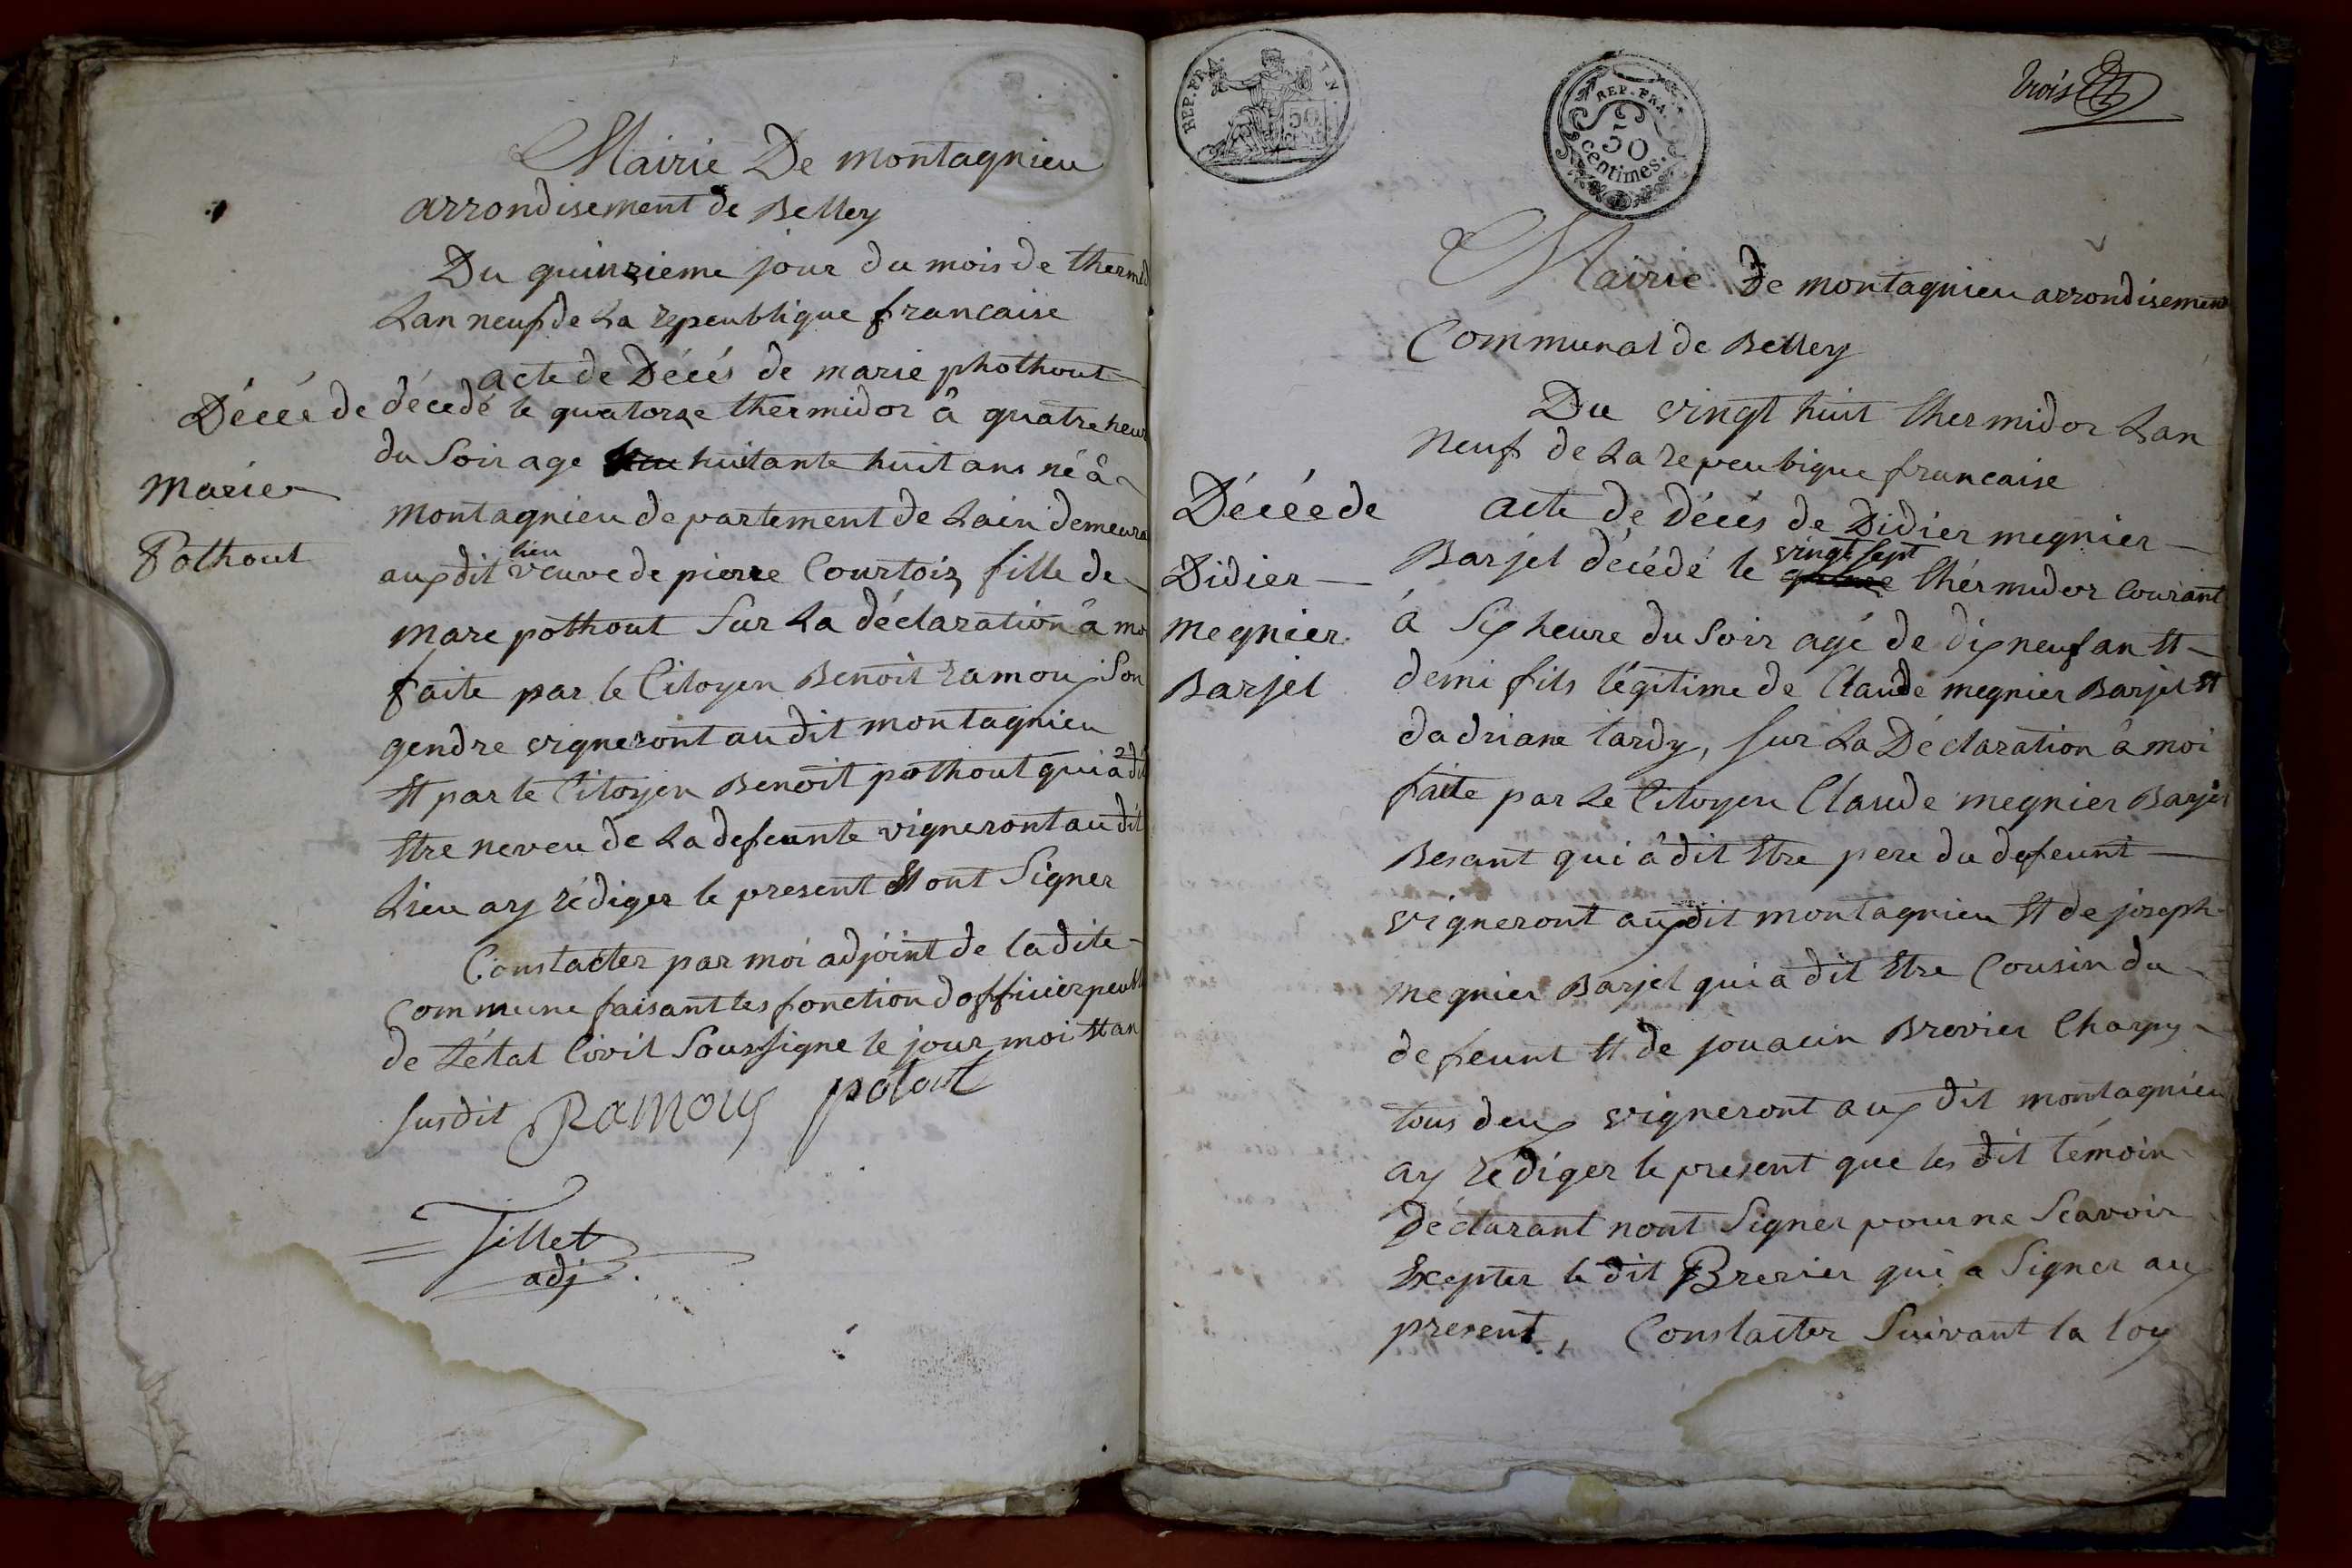 Mairie De montagnieu
arrondisement de Belley
Du quinzieme jour du mois de thermid
Lan neuf de La repeublique francaise
acte de Décés de marie phothout
Décée de
Marie
Pothout
décedé le quatorze thermidor â quatre heur
du Soir age huitante huit ans né â
Montagnieu departement de Lain demeura
aux dit lieu veuve de pierre Courtois fille de
Marc pothout Sur La déclaration â mo
faite par le Citoyen Benoit ramoux Son
gendre vigneront au dit montagnieu
Et par le Citoyen Benoit pothout qui â dit
Etre neveu de La defeunte vigneront au dit
Lieu ay rédiger le present Et ont Signer
Constacter par moi adjoint de la dite
Commune faisant les fonction dofficier peubl
de Létat Civil Soussigne le jour moi Et an
susdit Ramoux potout
Tillet
adj
REP. FRA.
50
trois
REP. FRA.
50
centimes.
Mairie De montagnieu arrondisement
Communal de Belley
Du vingt huit thermidor Lan
Neuf de La repeubique francaise
Décée de
Didier
Megnier
Barjel
acte de Décés de Didier megnier
Barjel décédé le vingt sept thérmidor Courant
â Six heure du Soir agé de dix neuf an Et
demi fils légitime de Claude megnier Barjel Et
dadriane tardy, Sur La Déclaration â moi
faite par Le Citoyen Claude megnier Barjel
Besant qui â dit Etre pere du defeunt
vigneront aux dit montagnieu Et de joseph
Megnier Barjel qui a dit Etre Cousin du
defeunt Et de jouacin Brevier Charpy
tous deux vigneront aux dit montagnieu
ay rédiger le present que les dit témoin
Déclarant nont Signer pour ne Scavoir
Excepter le dit Brevier qui a Signer au
present, Constacter Suivant la loy